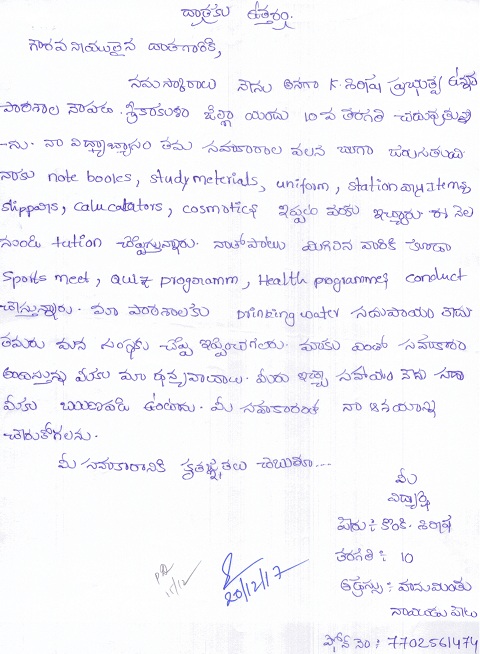 దాతకు ఉత్తరం.
గౌరవనీయులైన దాతగారికి,
నమస్కారాలు నేను అనగా K. శిరీష ప్రభుత్వ ఉన్నత
పాఠశాల సాపాం. శ్రీకాకుళం జిల్లా యందు 10వ తరగతి చదువుతున్నా
-ను. నా విద్యాభ్యాసం తమ సహకారాల వలన బాగా జరుగుతుంది
నాకు note books, study meterials, uniform, stationary Items
slippars, calculators, cosmotics ఇప్పటి వరకు ఇచ్చారు ఈ నెల
నుండి tution చెప్పిస్తున్నారు. నాతోపాటు మిగిలిన వారికి కూడా
Sports meet, Quiz programm, Health programmes conduct
చేస్తున్నారు. మా పాఠశాలకు Drinking water సదుపాయం లేదు
తమరు మన సంస్థకు చెప్పి ఇప్పించగలరు. మాకు ఎంతో సహకారం
అందిస్తున్న మీకు మా ధన్యవాదాలు. మీరు ఇచ్చే సహాయం నేను సదా
మీకు ఋణపడి ఉంటాను. మీ సహకారంతో నా ఆశయాన్ని
చేరుకోగలను.
మీ సహకారానికి కృతజ్ఞతలు చెబుతూ...
మీ
విద్యార్థి
పేరు : కొంకి. శిరీష
తరగతి : 10
అడ్రస్సు :
నాయుడు పేట
ఫోన్ నెం : 7702561474
20/12/17